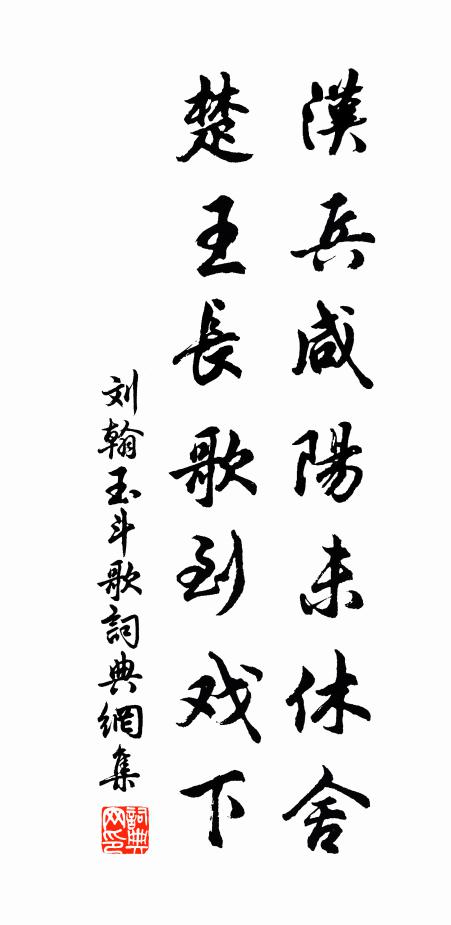 漢兵咸陽未休舍
楚王長歌到戏下
刘翰玉斗歌詞典網集
詞典网印